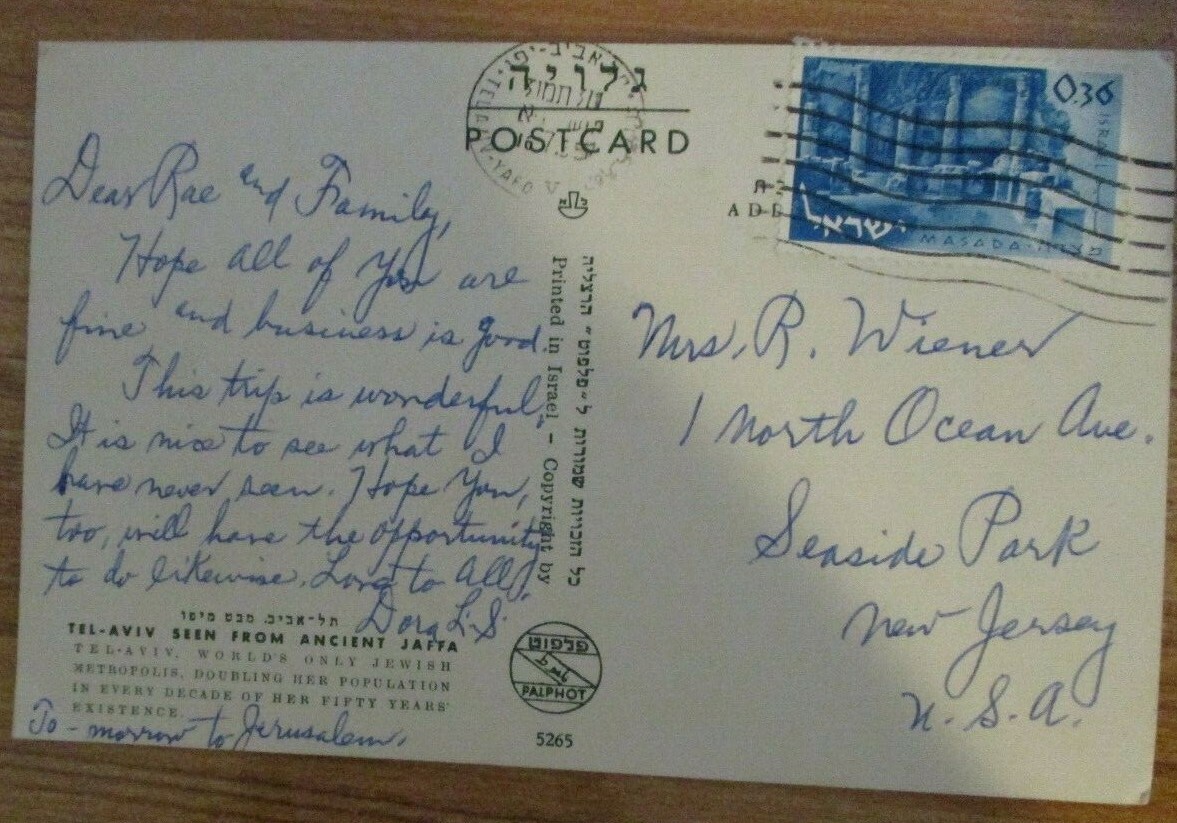 גלויה
POSTCARD
TEL AVIV-YAFO
0.36
ISRAEL
ישראל
MASADA · מצדה
ADD
Dear Rae and Family,
Hope all of you are
fine and business is good.
This trip is wonderful.
It is nice to see what I
have never seen. Hope you,
too, will have the opportunity
to do likewise. Love to All!
Dora L.S.
תל-אביב. מבט מיפו
TEL-AVIV SEEN FROM ANCIENT JAFFA
TEL-AVIV, WORLD'S ONLY JEWISH
METROPOLIS, DOUBLING HER POPULATION
IN EVERY DECADE OF HER FIFTY YEARS'
EXISTENCE.
To-morrow to Jerusalem.
Printed in Israel – Copyright by
כל הזכויות שמורות ל״פלפוט״ הרצליה
פלפוט
PALPHOT
5265
Mrs. R. Wiener
1 North Ocean Ave.
Seaside Park
New Jersey
U.S.A.